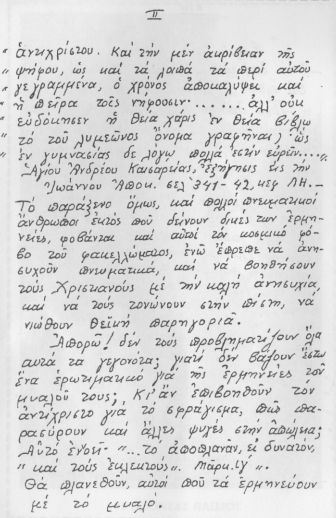 II
„ ἀντιχρίστου. Καί τήν μέν ἀκρίβειαν τῆς
„ ψήφου, ὡς καί τά λοιπά τά περί αὐτοῦ
„ γεγραμμένα, ὁ χρόνος ἀποκαλύψει καί
„ ἡ πεῖρα τοῖς νήφουσιν........ ἀλλ' οὐκ
„ εὐδόκησεν ἡ θεία χάρις ἐν θεία βίβλῳ
„ τό τοῦ λυμεῶνος ὄνομα γραφῆναι, ὡς
„ ἐν γυμνασίας δέ λόγῳ πολλά ἐστίν εὑρεῖν....„
Ἁγίου Ἀνδρέου Καισαρείας, ἐξήγησις εἰς τήν
Ἰωάννου Ἀποκ. σελ 341-42, κεφ ΛΗ.—
Τό παράξενο ὅμως, καί πολλοί πνευματικοί
ἄνθρωποι ἐκτός πού δείνουν δικές των ἑρμη-
νεῖες, φοβάνται καί αὐτοί τόν κοσμικό φό-
βο τοῦ φακελλώματος, ἐνῶ ἔπρεπε νά ἀνη-
συχοῦν πνευματικά, καί νά βοηθήσουν
τούς Χριστιανούς μέ τήν καλή ἀνησυχία,
καί νά τούς τονώνουν στήν πίστη, νά
νιώθουν θεϊκή παρηγοριά.
Ἀπορῶ! δέν τούς προβληματίζουν ὅλα
αὐτά τα γεγονότα; γιατί δέν βάζουν ἔστω
ἕνα ἐρωτηματικό γιά τῆς ἑρμηνεῖες τοῦ
μυαλοῦ τους; Κι' ἄν ἐπιβοηθοῦν τόν
ἀντίχριστο γιά τό σφράγισμα, πῶς πα-
ρασύρουν καί ἄλλες ψυχές στήν ἀπώλεια;
Αὐτό ἐνοεῖ- "... τό ἀποπλανᾶν, εἰ δυνατόν,
„ καί τούς ἐκλεκτούς„. Μάρκ. ιγ „.
Θά πλανεθοῦν, αὐτοί πού τά ἑρμηνεύουν
μέ τό μυαλό.